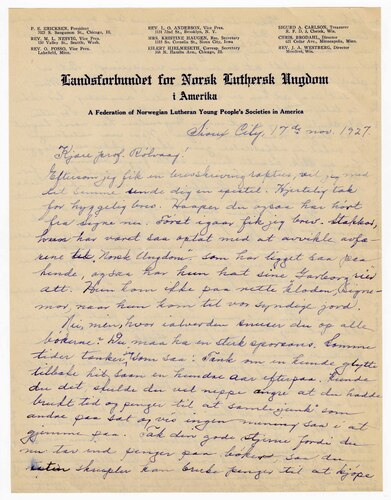 P. E. ERICKSEN, President
REV. M. L. NESVIG, Vice Pres.
REV. O. FOSSO, Vice Pres.
Lakefield, Minn.
REV. L. O. ANDERSON, Vice Pres.
MRS. KRISTINE HAUGEN, Rec. Secretary
EILERT HJELMESETH, Corresp. Secretary
SIGURD A. CARLSON, Treasurer
CHRIS. BRODAHL, Director
REV. J. A. WESTBERG, Director
Landsforbundet for Norsk Luthersk Ungdom
i Amerika
A Federation of Norwegian Lutheran Young People's Societies in America
Sioux City, 17de nov. 1927.
Kjære prof. Rölvaag!
Eftersom jeg fik en brevskrivning raptus, vil jeg med
det samme sende dig en epistel. Hjertelig tak
for hyggelig brev. Haaper du ogsaa har hørt
fra Signe nu. Først igaar fik jeg brev. Stakkar,
hun har været saa optat med at avvikle avfæ-
rene til Norsk Ungdom som har ligget saa paa-
hende, ogsaa har hun hat sine
att. Hun kom ikke paa rette kloden, Signe-
mor, naar hun kom til vor syndige jord.
Nu, men, hvor ialverden snuser du op alle
bøkerne? Du maa ha en sterk sporsans. Somme
tider tænker som saa: Tænk om en kunde glytte
tilbake hit saan en hundre aar efterpaa. Kunde
du det, skulde du vel neppe angre at du hadde
brukt tid og penger til at samle "junk" som
andre paa sat og vis ingen mening saa i at
gjemme paa. Tak den gode stjerne fordi du
nu tar ved penger paa bøker saa du
uten skrupler kan bruke penger til at kjøpe